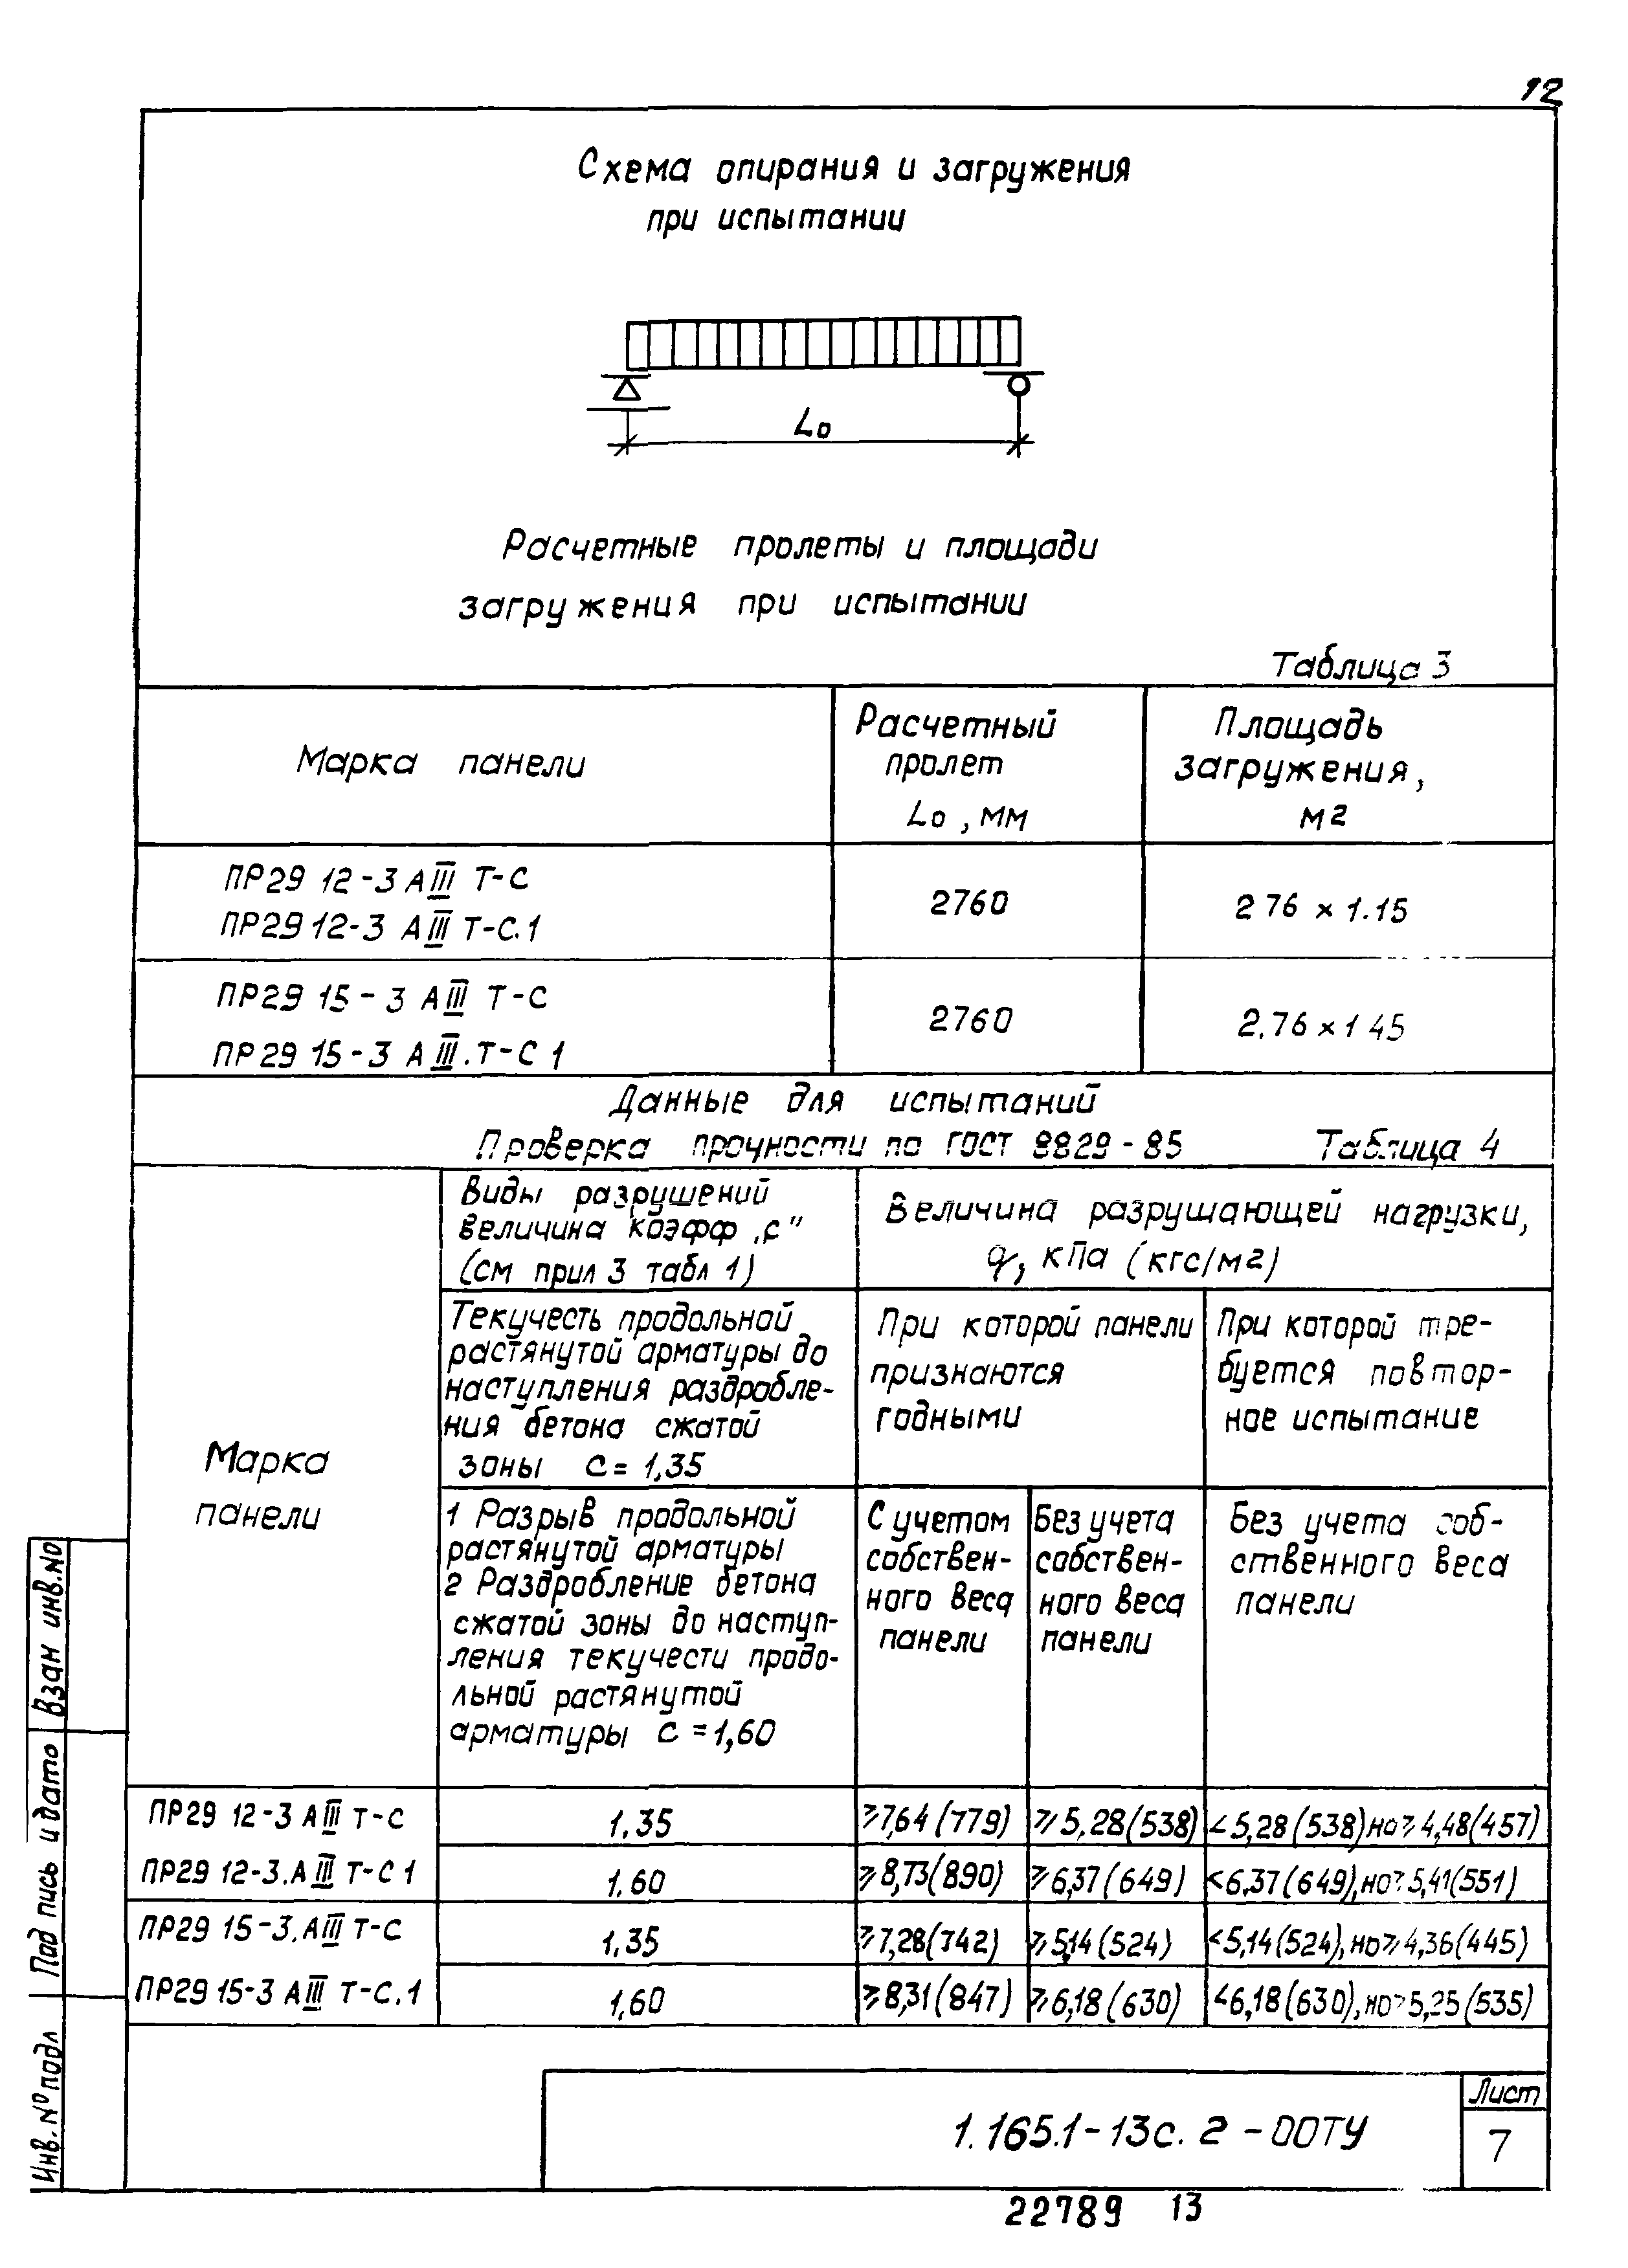 12
Схема опирания и загружения
при испытании
Lo
Расчетные пролеты и площади
загружения при испытании
Таблица 3
Марка панели
Расчетный
пролет
Lo, мм
Площадь
загружения,
м2
ПР29 12-3 АIII Т-С
ПР29 12-3 АIII Т-С.1
2760
2 76 × 1.15
ПР29 15-3 АIII Т-С
ПР29 15-3 АIII.Т-С 1
2760
2.76 × 1 45
Данные для испытаний
Проверка прочности по ГОСТ 8829-85
Таблица 4
Марка
панели
Виды разрушений
величина коэфф „С"
(см прил 3 табл 1)
Величина разрушающей нагрузки,
q, кПа (кгс/м2)
Текучесть продольной
растянутой арматуры до
наступления раздробле-
ния бетона сжатой
зоны С = 1,35
При которой панели
признаются
годными
При которой тре-
буется повтор-
ное испытание
1 Разрыв продольной
растянутой арматуры
2 Раздробление бетона
сжатой зоны до наступ-
ления текучести продо-
льной растянутой
арматуры С = 1,60
С учетом
собствен-
ного веса
панели
Без учета
собствен-
ного веса
панели
Без учета соб-
ственного веса
панели
ПР29 12-3 АIII Т-С
1.35
≥7,64 (779)
≥5,28(538)
<5,28 (538) но ≥4,48(457)
ПР29 12-3.АIII Т-С 1
1.60
≥8,73(890)
≥6,37(649)
<6,37(649), но ≥5,41(551)
ПР29 15-3.АIII Т-С
1.35
≥7,28(742)
≥5,14(524)
<5,14(524), но ≥4,36(445)
ПР29 15-3 АIII Т-С.1
1,60
≥8,31(847)
≥6,18(630)
<6,18(630), но ≥5,25(535)
Взам инв.№
Подпись и дата
Инв.№ подл
1.165.1-13с. 2 -00ТУ
Лист
7
22789 13